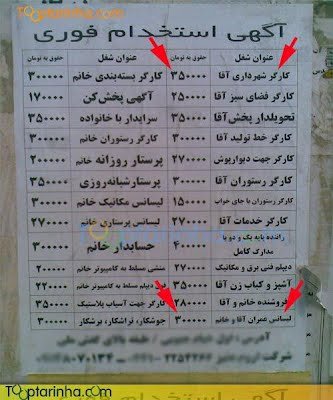 TOoptarinha.com
آگهی استخدام فوری
عنوان شغل حقوق به تومان عنوان شغل حقوق به تومان
کارگر شهرداری آقا ۳۵۰۰۰۰ کارگر بسته‌بندی خانم ۳۰۰۰۰۰
کارگر فضای سبز آقا ۲۵۰۰۰۰ آگهی پخش کن ۱۷۰۰۰۰
تحویلدار پخش آقا ۳۵۰۰۰۰ سرایدار با خانواده ۳۵۰۰۰۰
کارگر خط تولید آقا ۳۰۰۰۰۰ کارگر رستوران خانم ۳۰۰۰۰۰
کارگر جهت دیوارپوش ۲۷۰۰۰۰ پرستار روزانه خانم ۲۰۰۰۰۰
کارگر رستوران آقا ۳۰۰۰۰۰ پرستار شبانه‌روزی ۳۵۰۰۰۰
کارگر رستوران با جای خواب ۱۵۰۰۰۰ لیسانس مکانیک خانم ۳۰۰۰۰۰
کارگر خدمات آقا ۲۷۰۰۰۰ لیسانس پرستاری خانم ۲۷۰۰۰۰
راننده پایه یک و دو با مدارک کامل ۴۰۰۰۰۰ حسابدار خانم ۳۰۰۰۰۰
دیپلم فنی برق و مکانیک ۲۷۰۰۰۰ منشی مسلط به کامپیوتر خانم ۲۲۰۰۰۰
آشپز و کباب زن آقا ۳۵۰۰۰۰ دیپلم مسلط به کامپیوتر خانم ۲۰۰۰۰۰
فروشنده خانم و آقا ۲۸۰۰۰۰ کارگر جهت آسیاب پلاستیک ۳۵۰۰۰۰
لیسانس عمران آقا و خانم ۳۰۰۰۰۰ جوشکار، تراشکار، برشکار ۳۰۰۰۰۰
TOoptarinha.com